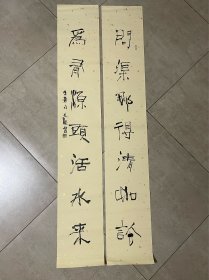 問渠那得清如許
為有源頭活水來